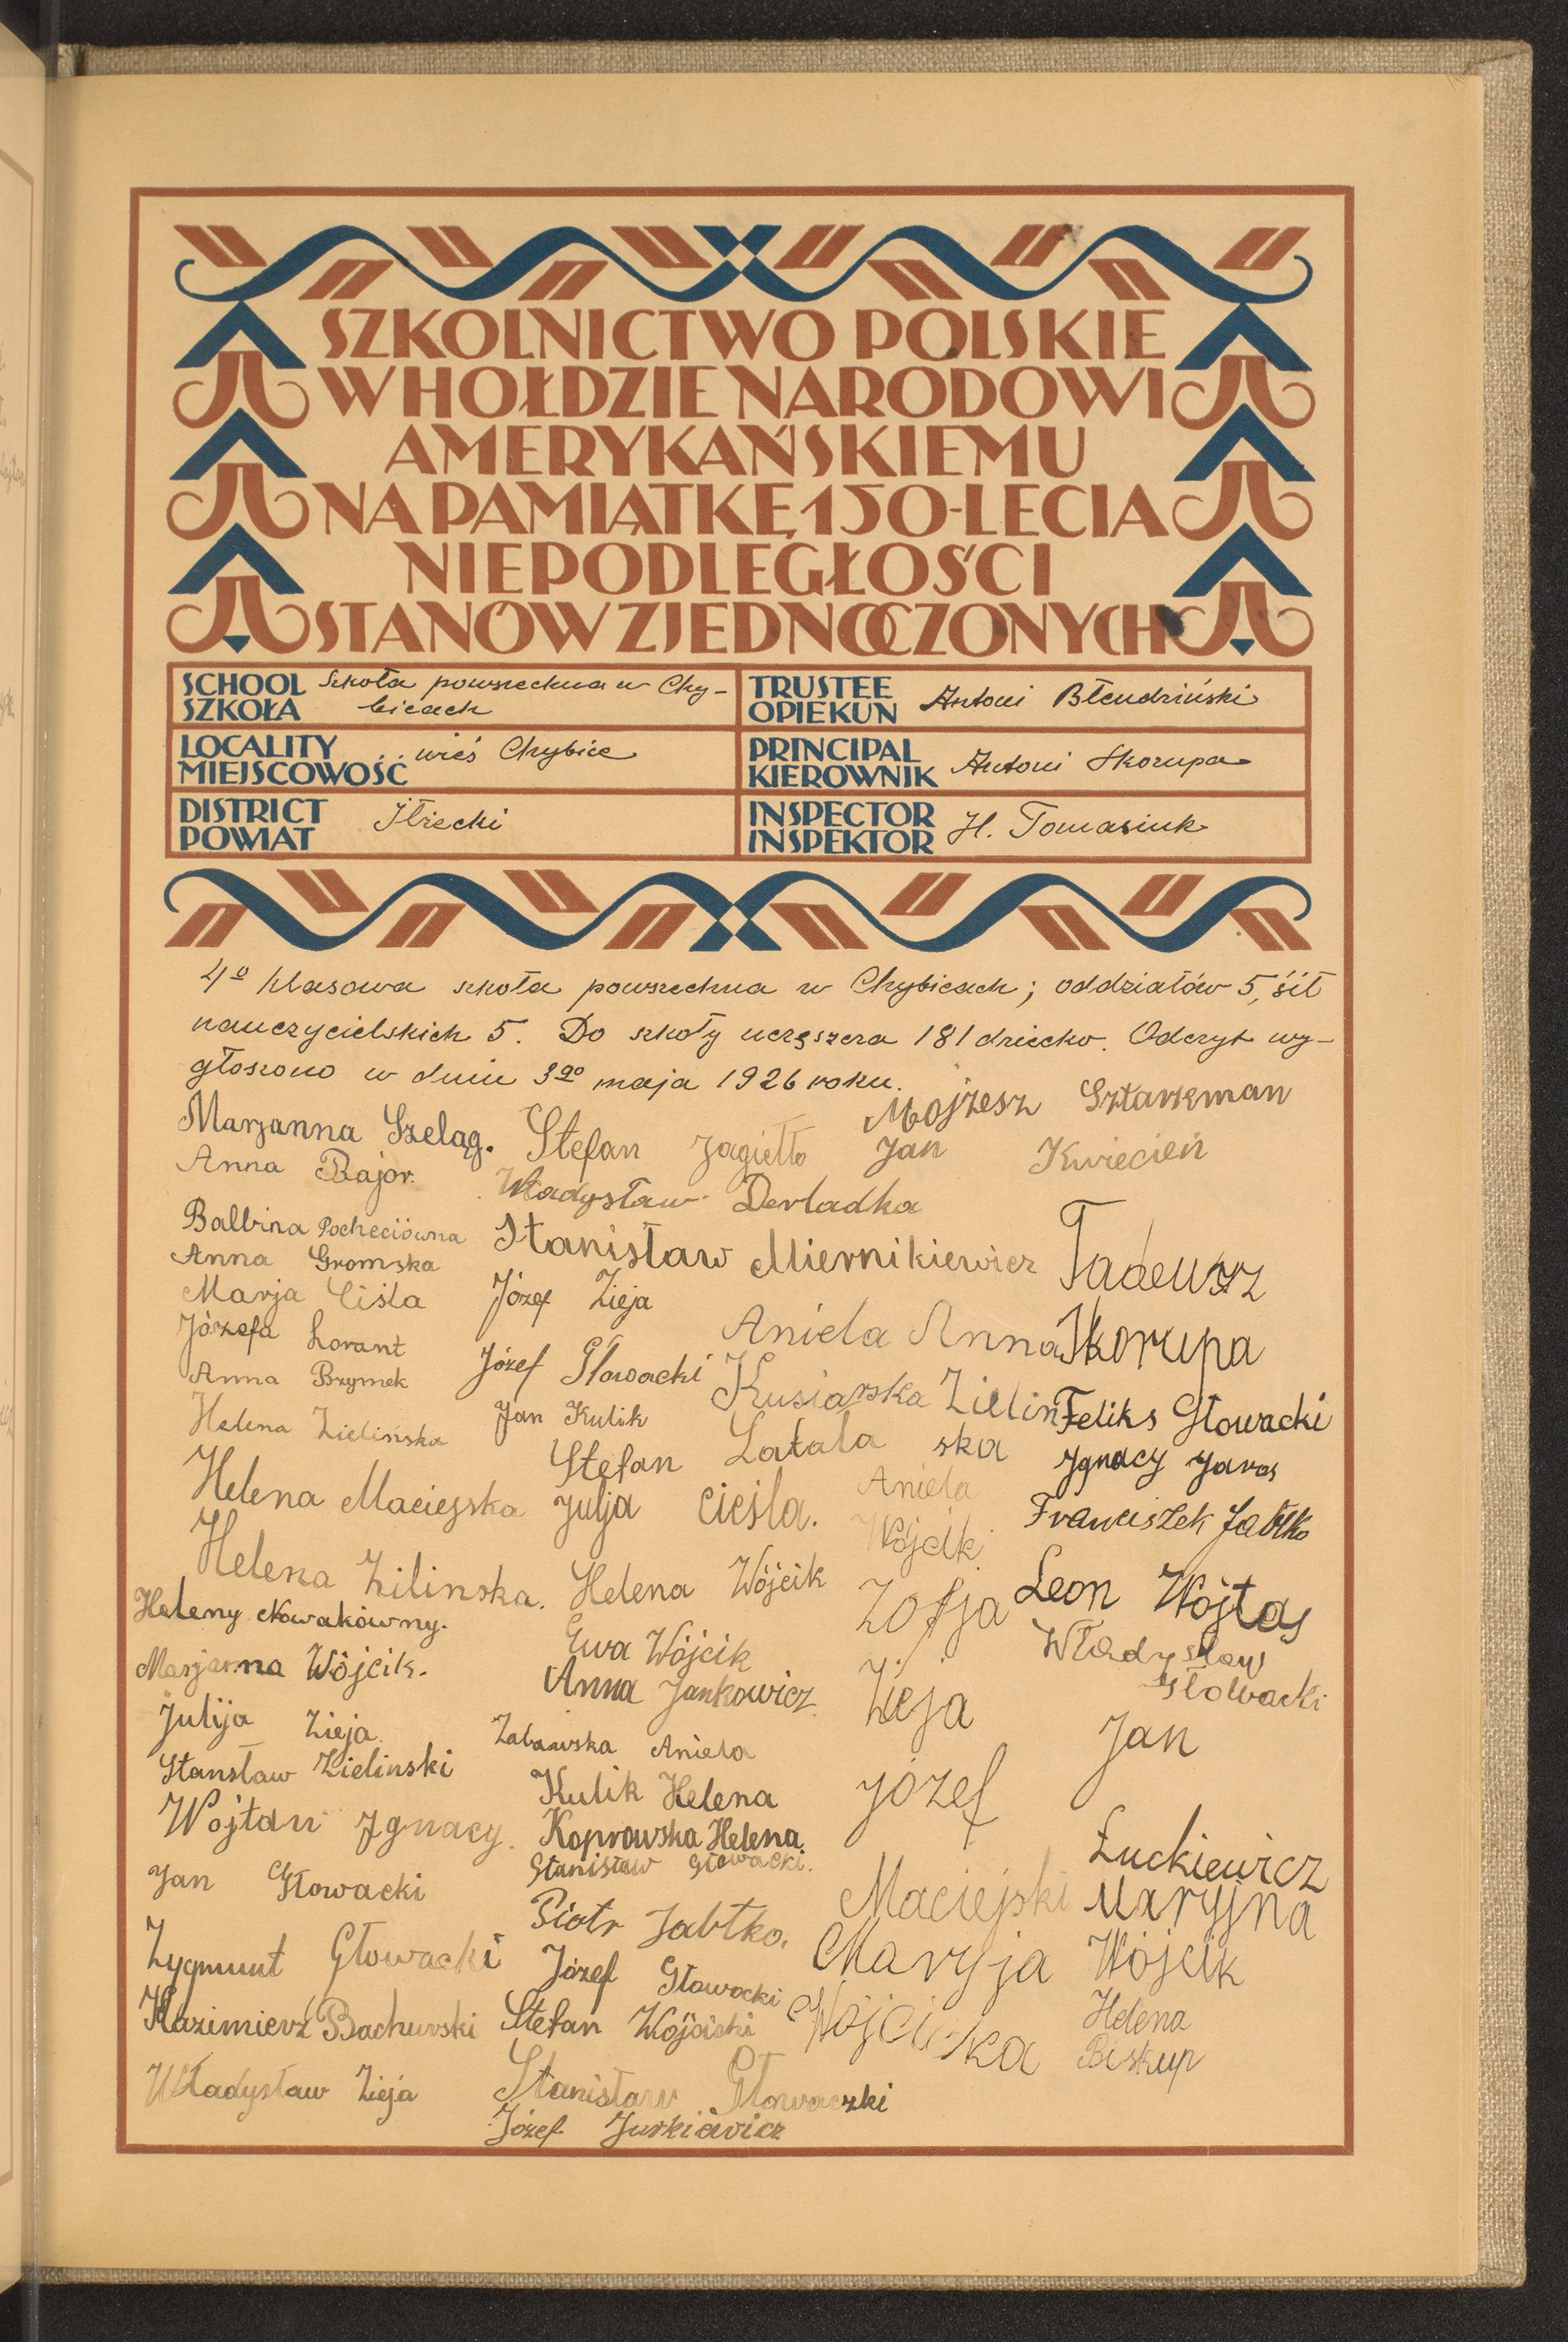 SZKOLNICTWO POLSKIE
W HOŁDZIE NARODOWI
AMERYKAŃSKIEMU
NA PAMIĄTKĘ 150-LECIA
NIEPODLEGŁOŚCI
STANÓW ZJEDNOCZONYCH
SCHOOL
SZKOŁA
Szkoła powszechna w Chy-
bicach
TRUSTEE
OPIEKUN
Antoni Błendziński
LOCALITY
MIEJSCOWOŚĆ
wieś Chybice
PRINCIPAL
KIEROWNIK
Antoni Skorupa
DISTRICT
POWIAT
Iłżecki
INSPECTOR
INSPEKTOR
H. Tomasiuk
4º klasowa szkoła powszechna w Chybicach; oddziałów 5, sił
nauczycielskich 5. Do szkoły uczęszcza 181 dziecko. Odczyt wy-
głoszono w dniu 3go maja 1926 roku.
Marjanna Szeląg.
Anna Bajor.
Balbina Pocheciówna
Anna Gromska
Marja Ciśla
Józefa Lorant
Anna Brzymek
Helena Zielińska
Helena Maciejska
Helena Zilinska.
Heleny Nowakówny.
Marjanna Wójcik.
Julija Zieja
Stansław Zielinski
Wojtan Ignacy.
Jan Głowacki
Zygmunt Głowacki
Kazimierz Bachurski
Władysław Zieja
Stefan Jagiełło
Władysław Derladka
Stanisław Miernikiewicz
Józef Zieja
Józef Głowacki
Jan Kulik
Stefan Latala
Julja Cieśla.
Helena Wójcik
Ewa Wójcik
Anna Jankowicz.
Zabawska Aniela
Kulik Helena
Koprowska Helena
Stanisław Głowacki.
Piotr Jabłko.
Józef Głowacki
Stefan Wójcicki
Stanisław Głowaczki
Józef Jurkiewicz
Mojżesz Sztarkman
Jan Kwiecień
Aniela
Kusiarska
Anna
Zielin
ska
Aniela
Wójcik
Zofja
Zieja
Józef
Maciejski
Maryja
Wójcicka
Tadeusz
Skorupa
Feliks Głowacki
Ignacy Jaros
Franciszek Jabłko
Leon Wójtas
Władysław
Głowacki
Jan
Łuckiewicz
Maryjna
Wójcik
Helena
Biskup